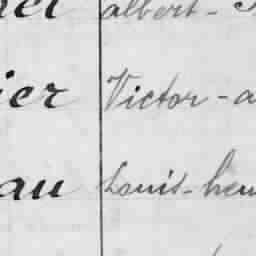 albert -
ier Victor - a
au Louis - hen